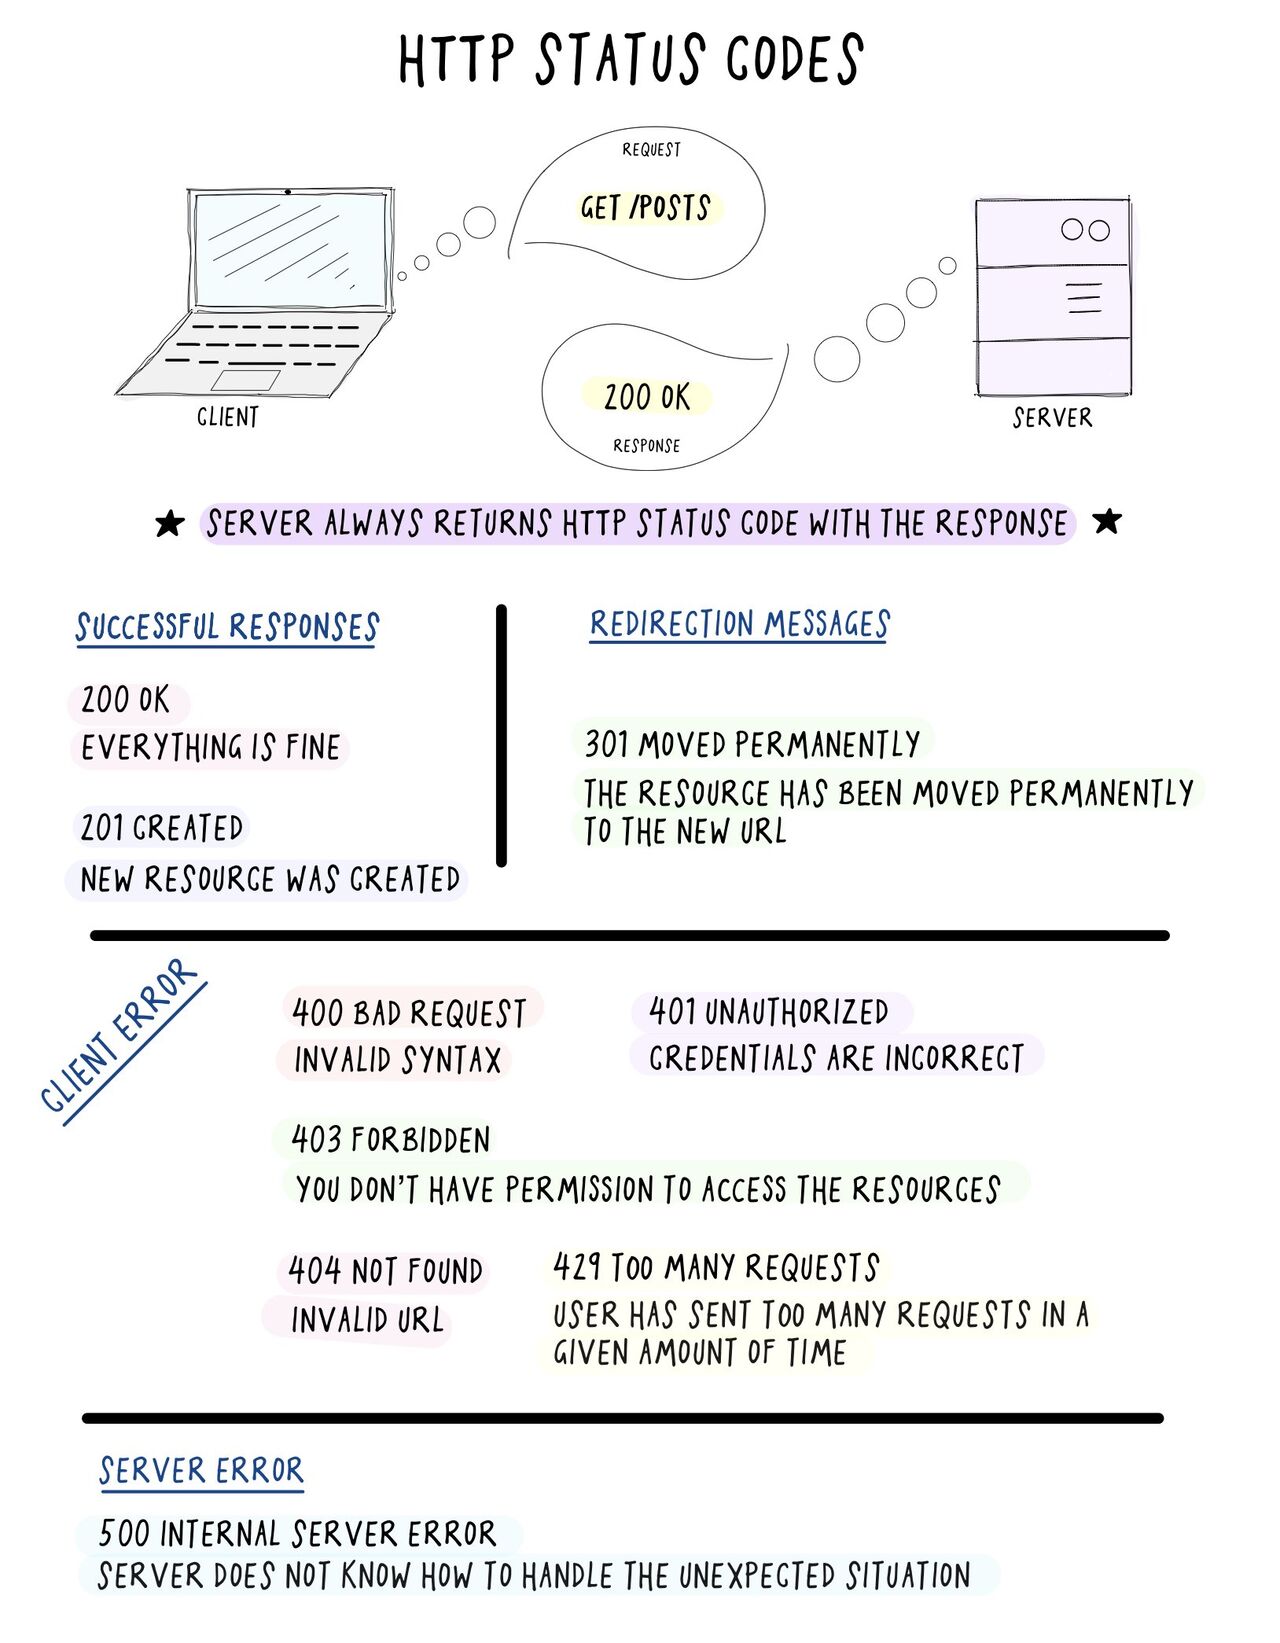 HTTP STATUS CODES
REQUEST
GET /POSTS
200 OK
RESPONSE
CLIENT
SERVER
★ SERVER ALWAYS RETURNS HTTP STATUS CODE WITH THE RESPONSE ★
SUCCESSFUL RESPONSES
200 OK
EVERYTHING IS FINE
201 CREATED
NEW RESOURCE WAS CREATED
REDIRECTION MESSAGES
301 MOVED PERMANENTLY
THE RESOURCE HAS BEEN MOVED PERMANENTLY
TO THE NEW URL
CLIENT ERROR
400 BAD REQUEST
INVALID SYNTAX
401 UNAUTHORIZED
CREDENTIALS ARE INCORRECT
403 FORBIDDEN
YOU DON'T HAVE PERMISSION TO ACCESS THE RESOURCES
404 NOT FOUND
INVALID URL
429 TOO MANY REQUESTS
USER HAS SENT TOO MANY REQUESTS IN A
GIVEN AMOUNT OF TIME
SERVER ERROR
500 INTERNAL SERVER ERROR
SERVER DOES NOT KNOW HOW TO HANDLE THE UNEXPECTED SITUATION